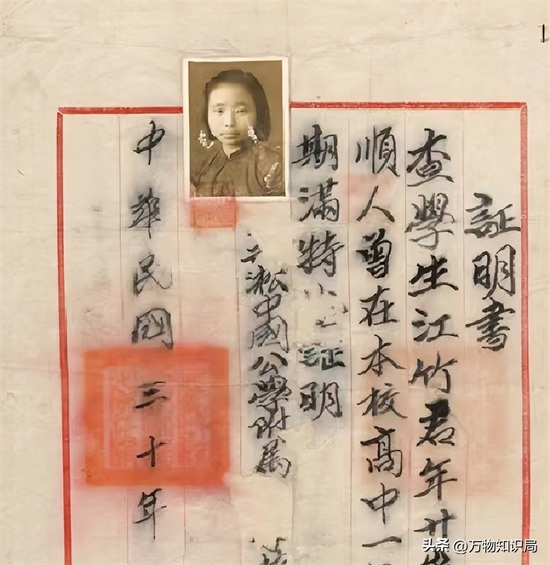 証明書
查學生江竹君年廿
順人曾在本校高中一
期滿特 証明
淞中國公學附属
中華民國三十年
1
头条 @万物知识局